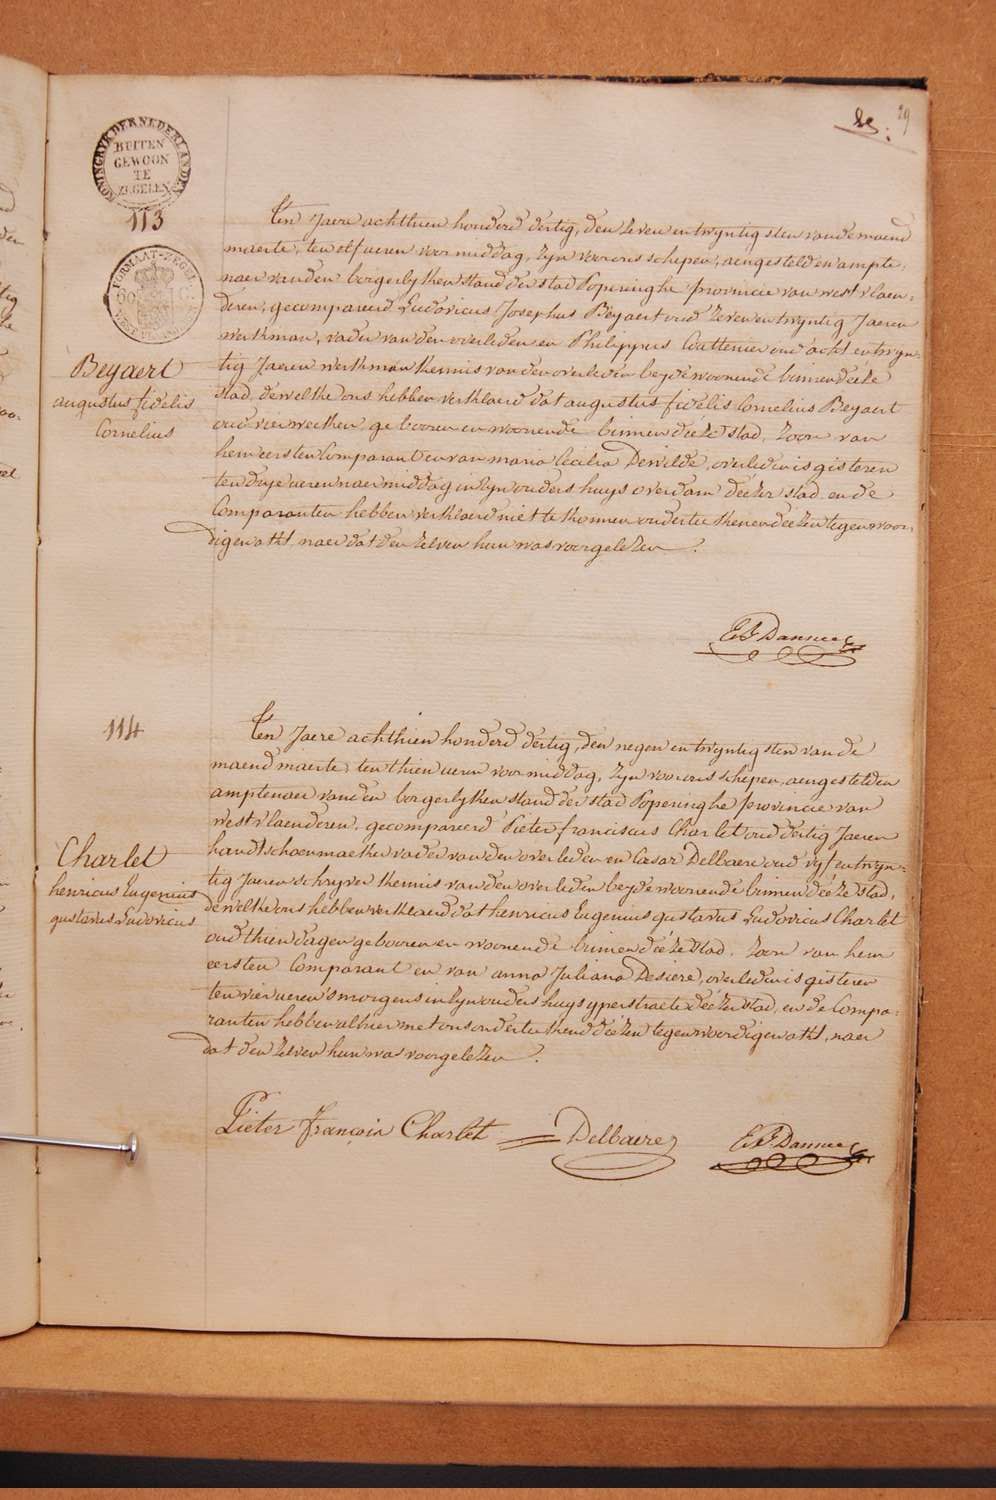 29
KONINGRYK DER NEDERLANDEN
BUITEN
GEWOON
TE
ZEGELEN
113
FORMAAT-ZEGEL
Beyaert
augustus fidelis
Cornelius
Ten Jaere achthien honderd dertig, den zeven en twyntigsten van de maend
maerte, ten elf ueren voormiddag, zyn voor ons schepen, aengestelden ampte-
naer van den borgerlyken stand der stad Poperinghe provincie van westvlaen-
deren, gecompareerd Ludovicus Josephus Beyaert oud zeven en twyntig Jaeren
werkman, vader van den overleden en Philippus Cattenier oud acht en twyn-
tig Jaeren werkman kennis van den overleden beyde woonende binnen deéze
stad, dewelke ons hebben verklaerd dat augustus fidelis Cornelius Beyaert
oud vier weeken gebooren en woonende binnen deéze stad, zoon van
hem eersten Comparant en van maria Cecilia Dewilde, overleden is gisteren
ten dry ueren naermiddag in zyn ouders huys overdam deézer stad en de
Comparanten hebben verklaerd niet te konnen onderteekenen deézen tegenwoor-
digen akt, naer dat den zelven hun was voorgelezen.
E F Dannee
114
Charlet
henricus Eugenius
gustavus Ludovicus
Ten Jaere achthien honderd dertig, den negen en twyntigsten van de
maend maerte, ten thien ueren voormiddag, zyn voor ons schepen, aengestelden
amptenaer van den borgerlyken stand der stad Poperinghe provincie van
westvlaenderen, gecompareerd Pieter franciscus Charlet oud dertig Jaeren
handtschoenmaeker vader van den overleden en Cæsar Delbaere oud vyf en twyn-
tig Jaeren schryver kennis van den overleden beyde woonende binnen deéze stad,
dewelke ons hebben verklaerd dat henricus Eugenius gustavus Ludovicus Charlet
oud thien dagen gebooren en woonende binnen deéze stad, zoon van hem
eersten Comparant en van anna Juliana Desiere, overleden is gisteren
ten vier ueren s'morgens in zyn ouders huys yperstraete deézer stad, en de Compa-
ranten hebben alhier met ons onderteekend deézen tegenwoordigen akt, naer
dat den zelven hun was voorgelezen.
Pieter françois Charlet
Delbaere
E F. Dannee